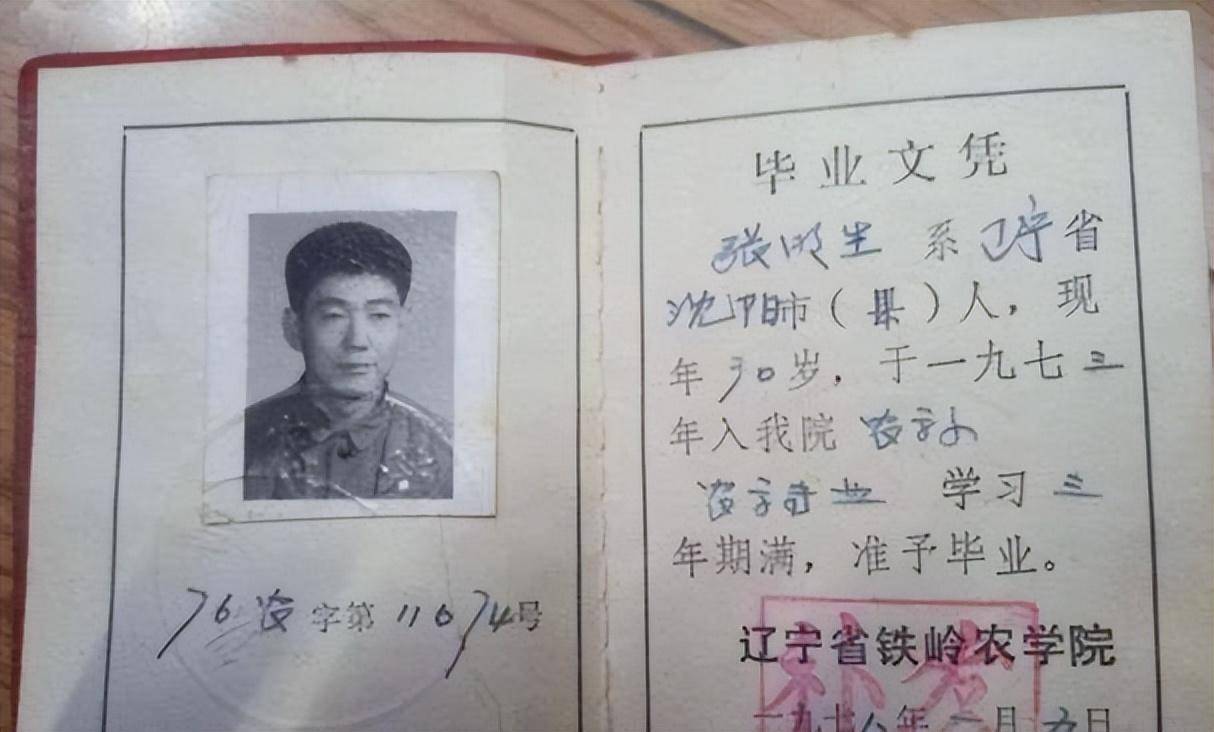 76农字第11674号
毕业文凭
张明生 系辽宁省
沈阳市(县)人,现
年30岁,于一九七三
年入我院 农学
农学专业 学习三
年期满,准予毕业。
辽宁省铁岭农学院
补发
一九七 年 月 日